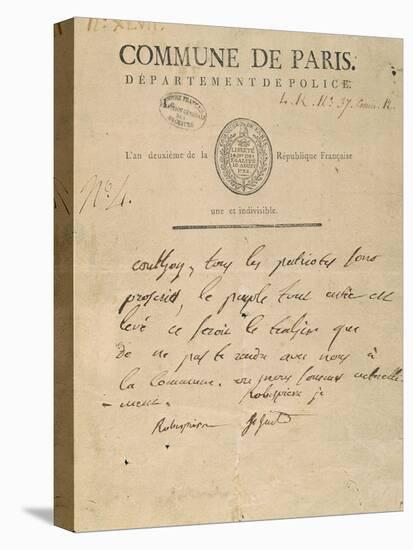 N° XLVII.
COMMUNE DE PARIS.
DÉPARTEMENT DE POLICE.
L'an deuxième de la République Française
COMMUNE DE PARIS
LIBERTÉ
ÉGALITÉ
10 AOUST
1792
une et indivisible.
N° 4.
couthon, tous les patriotes sont
proscrits, le peuple tout entier est
levé ce seroit le trahir que
de ne pas te rendre avec nous à
la Commune, ou nous sommes actuelle
-ment. Robespierre je
Robespierre St Just